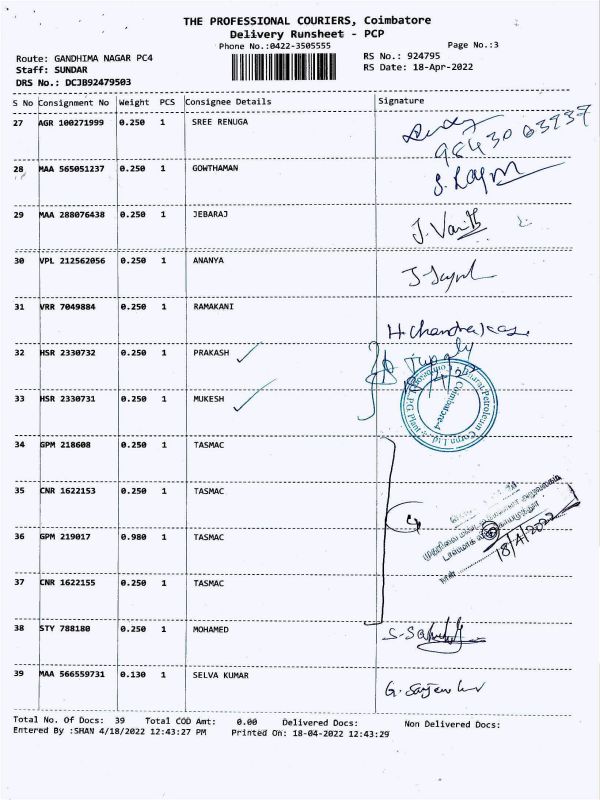 THE PROFESSIONAL COURIERS, Coimbatore
Delivery Runsheet - PCP
Phone No.:0422-3505555
Page No.:3
Route: GANDHIMA NAGAR PC4
Staff: SUNDAR
DRS No.: DCJB92479503
RS No.: 924795
RS Date: 18-Apr-2022
S No Consignment No Weight PCS Consignee Details Signature
27 AGR 100271999 0.250 1 SREE RENUGA
28 MAA 565051237 0.250 1 GOWTHAMAN
29 MAA 288076438 0.250 1 JEBARAJ
30 VPL 212562056 0.250 1 ANANYA
31 VRR 7049884 0.250 1 RAMAKANI
32 HSR 2330732 0.250 1 PRAKASH
33 HSR 2330731 0.250 1 MUKESH
Coimbatore-4
34 GPM 218608 0.250 1 TASMAC
35 CNR 1622153 0.250 1 TASMAC
36 GPM 219017 0.980 1 TASMAC
18/4/2022
37 CNR 1622155 0.250 1 TASMAC
38 STY 788180 0.250 1 MOHAMED
39 MAA 566559731 0.130 1 SELVA KUMAR
Total No. Of Docs: 39 Total COD Amt: 0.00 Delivered Docs: Non Delivered Docs:
Entered By :SHAN 4/18/2022 12:43:27 PM Printed On: 18-04-2022 12:43:29